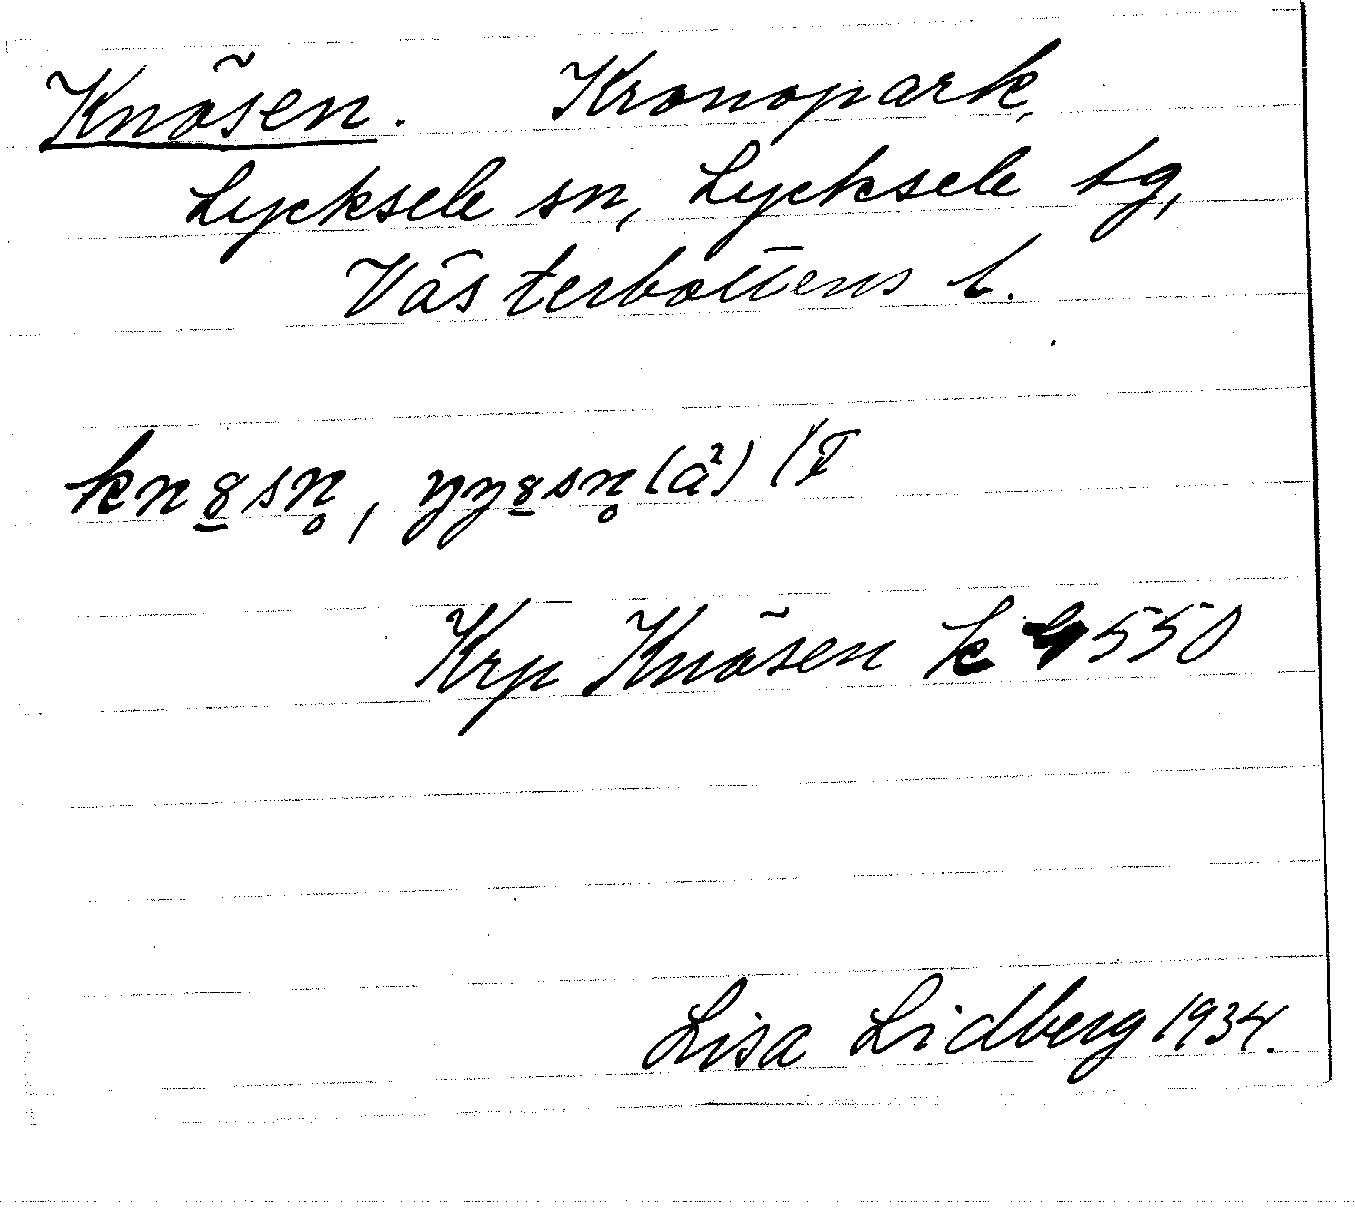 Knösen. Kronopark,
Lycksele sn, Lycksele tg,
Västerbottens l.
kn8sn̥, yy8sn̥ (å²)
Krp Knösen k 550
Lisa Lidberg 1934.